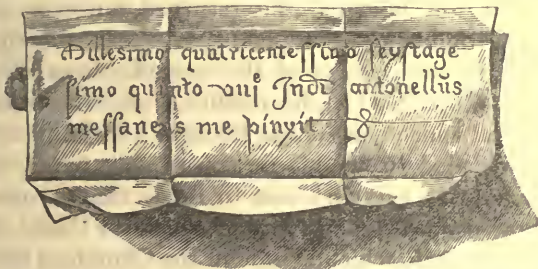 Millesimo quatricenteſſimo ſexſtage
ſimo quinto viijͤ Indi antonellus
meſſaneus me pinxit